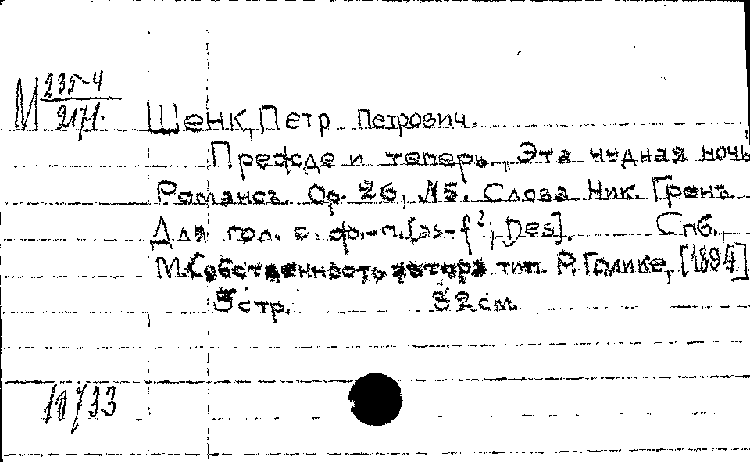 М 235-4
217/1.
Шенк, Петр Петрович.
Прежде и теперь. „Эта чудная ночь
Романсъ. Ор. 26, №5. Слова Ник. Грекъ
Для гол. с ф.-п. [as-f², Des]. Спб.
М. Собственность автора тип. Р. Голике, [1894]
5 стр. 32 см.